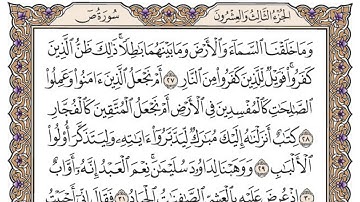 الجزء الثالث والعشرون سورة ص
وَمَا خَلَقْنَا السَّمَاءَ وَالْأَرْضَ وَمَا بَيْنَهُمَا بَاطِلًا ذَٰلِكَ ظَنُّ الَّذِينَ
كَفَرُوا فَوَيْلٌ لِّلَّذِينَ كَفَرُوا مِنَ النَّارِ ٢٧ أَمْ نَجْعَلُ الَّذِينَ ءَامَنُوا وَعَمِلُوا
الصَّٰلِحَٰتِ كَالْمُفْسِدِينَ فِي الْأَرْضِ أَمْ نَجْعَلُ الْمُتَّقِينَ كَالْفُجَّارِ
٢٨ كِتَٰبٌ أَنزَلْنَٰهُ إِلَيْكَ مُبَٰرَكٌ لِّيَدَّبَّرُوا ءَايَٰتِهِ وَلِيَتَذَكَّرَ أُولُوا
الْأَلْبَٰبِ ٢٩ وَوَهَبْنَا لِدَاوُۥدَ سُلَيْمَٰنَ نِعْمَ الْعَبْدُ إِنَّهُ أَوَّابٌ
٣٠ إِذْ عُرِضَ عَلَيْهِ بِالْعَشِيِّ الصَّٰفِنَٰتُ الْجِيَادُ ٣١ فَقَالَ إِنِّي أَحْبَبْتُ